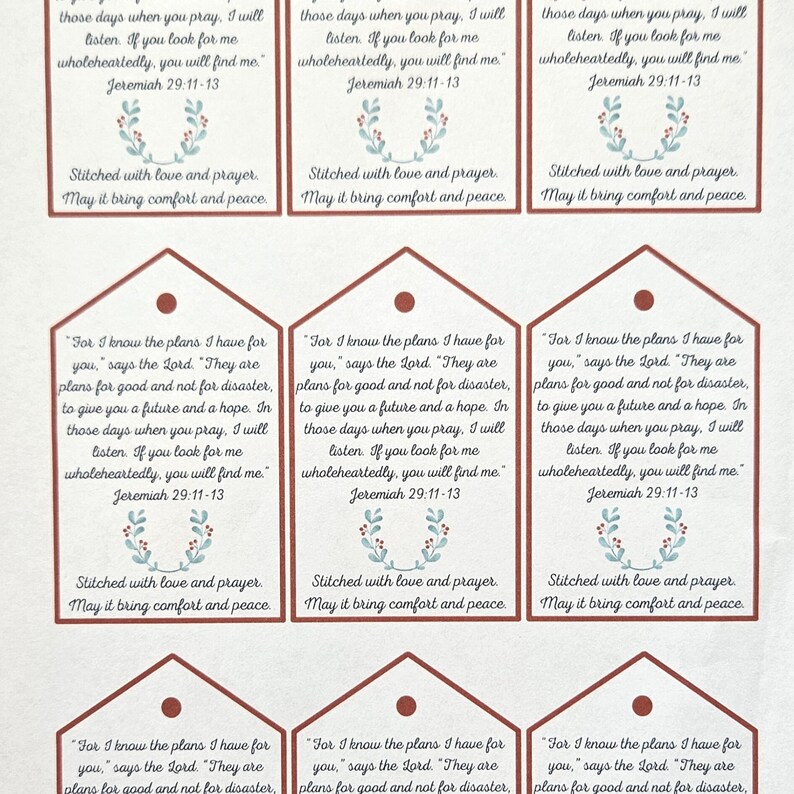 those days when you pray, I will
listen. If you look for me
wholeheartedly, you will find me."
Jeremiah 29:11-13
Stitched with love and prayer.
May it bring comfort and peace.
those days when you pray, I will
listen. If you look for me
wholeheartedly, you will find me."
Jeremiah 29:11-13
Stitched with love and prayer.
May it bring comfort and peace.
those days when you pray, I will
listen. If you look for me
wholeheartedly, you will find me."
Jeremiah 29:11-13
Stitched with love and prayer.
May it bring comfort and peace.
"For I know the plans I have for
you," says the Lord. "They are
plans for good and not for disaster,
to give you a future and a hope. In
those days when you pray, I will
listen. If you look for me
wholeheartedly, you will find me."
Jeremiah 29:11-13
Stitched with love and prayer.
May it bring comfort and peace.
"For I know the plans I have for
you," says the Lord. "They are
plans for good and not for disaster,
to give you a future and a hope. In
those days when you pray, I will
listen. If you look for me
wholeheartedly, you will find me."
Jeremiah 29:11-13
Stitched with love and prayer.
May it bring comfort and peace.
"For I know the plans I have for
you," says the Lord. "They are
plans for good and not for disaster,
to give you a future and a hope. In
those days when you pray, I will
listen. If you look for me
wholeheartedly, you will find me."
Jeremiah 29:11-13
Stitched with love and prayer.
May it bring comfort and peace.
"For I know the plans I have for
you," says the Lord. "They are
plans for good and not for disaster,
"For I know the plans I have for
you," says the Lord. "They are
plans for good and not for disaster,
"For I know the plans I have for
you," says the Lord. "They are
plans for good and not for disaster,